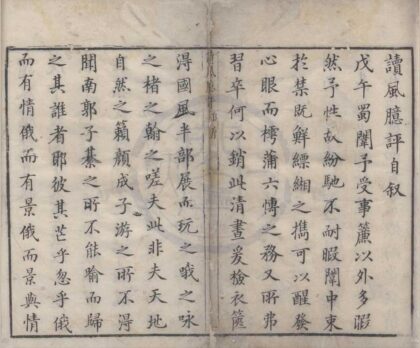 讀風臆評自叙
戊午蜀闈予受事簾以外多暇
然予性故紛馳不耐暇闈中束
於禁既鮮縹緗之攜可以醒發
心眼而樗蒲六愽之務又所弗
習卒何以銷此清晝爰檢衣篋
淂國風半部展而玩之哦之咏
之楮之翰之嗟夫此非夫天地
自然之籟顏成子游之所不得
聞南郭子綦之所不能喻而歸
之其誰者耶彼其芒乎忽乎俄
而有情俄而有景俄而景與情